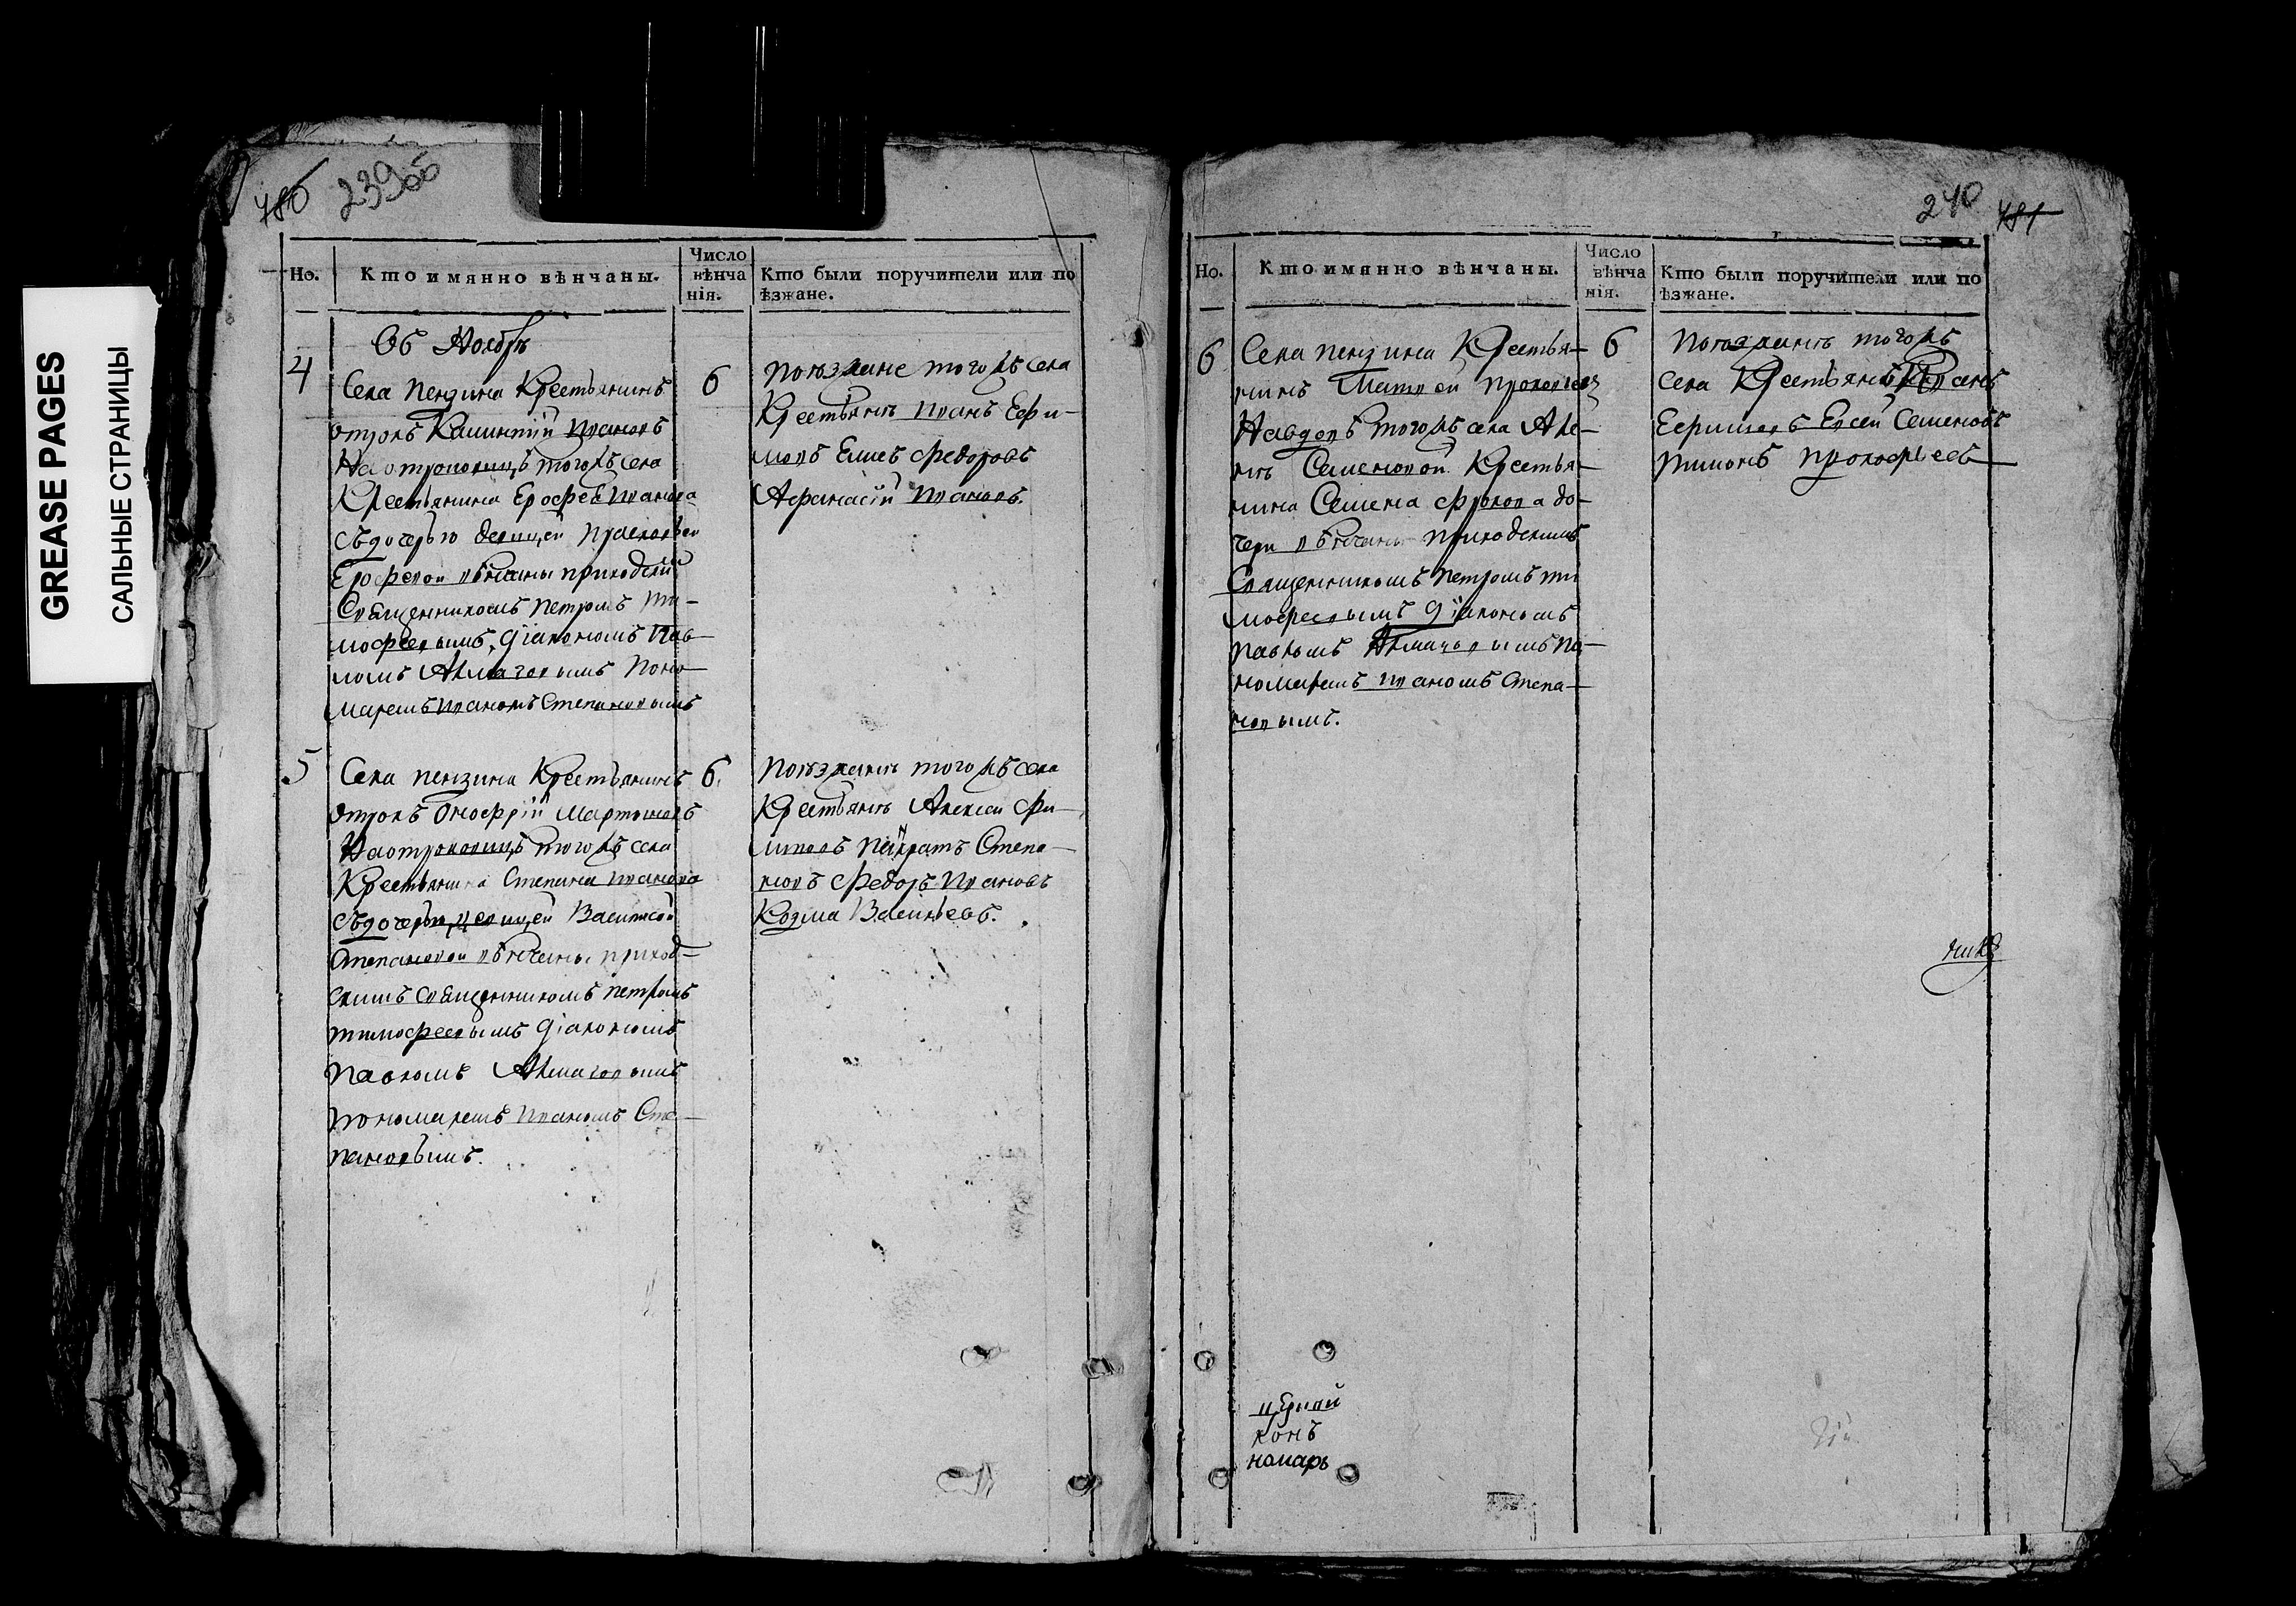 GREASE PAGES
САЛЬНЫЕ СТРАНИЦЫ
480 239об
Но.
Кто имянно вѣнчаны.
Число
вѣнча
нія.
Кто были поручители или по
ѣзжане.
Въ Ноябрѣ
4
Села пензина Крестьянинъ
отрокъ Калинтій Ивановъ
На отроковицѣ тогожъ села
Крестьянина Ерофея Иванова
съдочерью девицей Прасковьей
Ерофевой вѣнчаны приходский
Священникомъ петромъ ти-
мофеевымъ, Діакономъ пав-
ломъ Алмазовымъ поно-
маремъ Иваномъ Степановымъ
6
поѣзжане тогожъ села
Крестьянѣ Иванъ Ефи-
мовъ Емел Федоровъ
Афанасій Ивановъ.
5
Села пензина Крестьянинъ
отрокъ Онофрій Мартиновъ
На отроковицѣ тогожъ села
Крестьянина Степана Иванова
съдочерью девицей Василисой
Степановой вѣнчаны приход-
скимъ священникомъ петромъ
тимофеевымъ Діакономъ
павломъ Алмазовымъ
пономаремъ Иваномъ Сте-
пановымъ.
6.
поѣзжанѣ тогожъ села
Крестьянѣ Алексей Фи-
липовъ Панкратъ Степа-
новъ Федоръ Ивановъ
Козма Васильевъ.
240 481
Но.
Кто имянно вѣнчаны.
Число
вѣнча
нія.
Кто были поручители или по
ѣзжане.
6
Села пензина Крестья-
нинъ Матвей прокофьевъ
На вдовѣ тогожъ села Але-
нѣ Семеновой Крестья-
нина Семена Фролова до-
чери вѣнчаны приходскимъ
Священникомъ петромъ ти
мофеевымъ Діакономъ
павломъ Алмазовымъ по-
номаремъ Иваномъ Степа-
новымъ.
6
поѣзжанѣ тогожъ
села Крестьянѣ Иванъ
Ефимовъ Евсей Семеновъ
тимонъ прокофьевъ
конъ
номарь